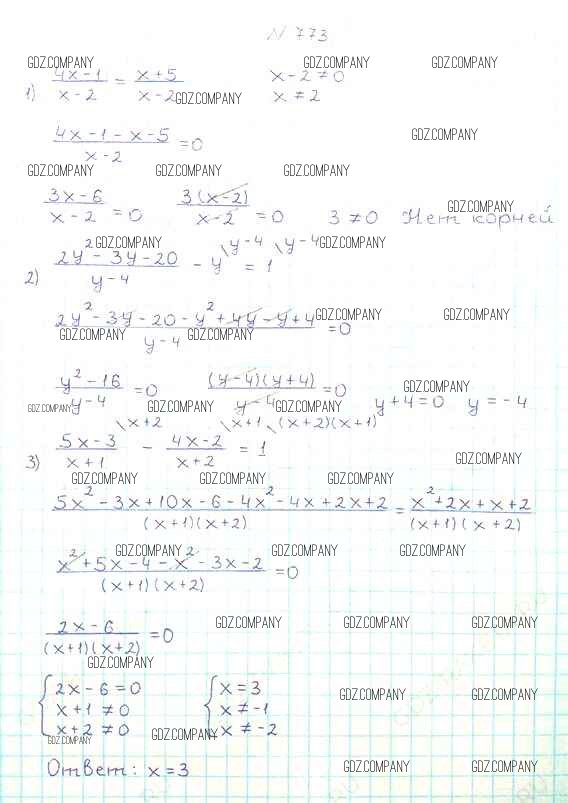 N 773
GDZ.COMPANY GDZ.COMPANY GDZ.COMPANY
1) (4x-1)/(x-2) = (x+5)/(x-2) x-2 ≠ 0
GDZ.COMPANY x ≠ 2
(4x-1-x-5)/(x-2) = 0 GDZ.COMPANY
GDZ.COMPANY GDZ.COMPANY GDZ.COMPANY
(3x-6)/(x-2) = 0 3(x-2)/(x-2) = 0 3 ≠ 0 Нет корней GDZ.COMPANY
GDZ.COMPANY GDZ.COMPANY
2) (2y²-3y-20)/(y-4) - y\y-4 = 1\y-4
(2y²-3y-20-y²+4y-y+4)/(y-4) = 0 GDZ.COMPANY GDZ.COMPANY
GDZ.COMPANY GDZ.COMPANY
(y²-16)/(y-4) = 0 (y-4)(y+4)/(y-4) = 0 y+4=0 y=-4 GDZ.COMPANY
GDZ.COMPANY GDZ.COMPANY GDZ.COMPANY
3) (5x-3)/(x+1)\x+2 - (4x-2)/(x+2)\x+1 = 1\(x+2)(x+1) GDZ.COMPANY
GDZ.COMPANY GDZ.COMPANY GDZ.COMPANY
(5x²-3x+10x-6-4x²-4x+2x+2)/((x+1)(x+2)) = (x²+2x+x+2)/((x+1)(x+2))
GDZ.COMPANY GDZ.COMPANY GDZ.COMPANY
(x²+5x-4-x²-3x-2)/((x+1)(x+2)) = 0
(2x-6)/((x+1)(x+2)) = 0 GDZ.COMPANY GDZ.COMPANY GDZ.COMPANY
GDZ.COMPANY
{2x-6=0 {x=3
x+1≠0 x≠-1 GDZ.COMPANY GDZ.COMPANY
x+2≠0 x≠-2
GDZ.COMPANY GDZ.COMPANY
Ответ: x=3 GDZ.COMPANY GDZ.COMPANY